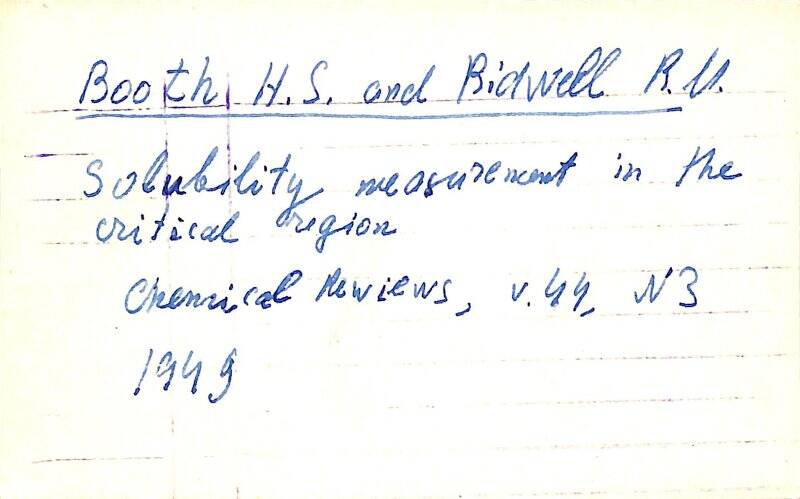 Booth H.S. and Bidwell R.M.
Solubility measurement in the
critical region
Chemical Reviews, v.44, N3
1949